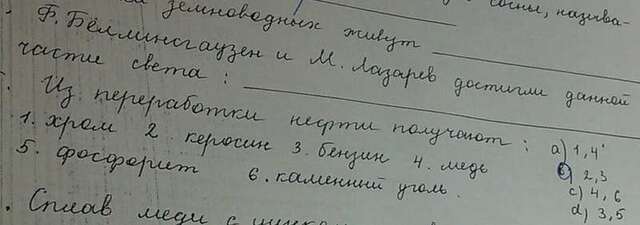 земноводных живут
сосны, называ-
Ф. Беллинсгаузен и М. Лазарев достигли данной
части света:
Из переработки нефти получают:
1. хром 2 керосин 3. бензин 4. медь
5. фосфорит 6. каменный уголь.
a) 1,4
b) 2,3
c) 4,6
d) 3,5
Сплав меди с